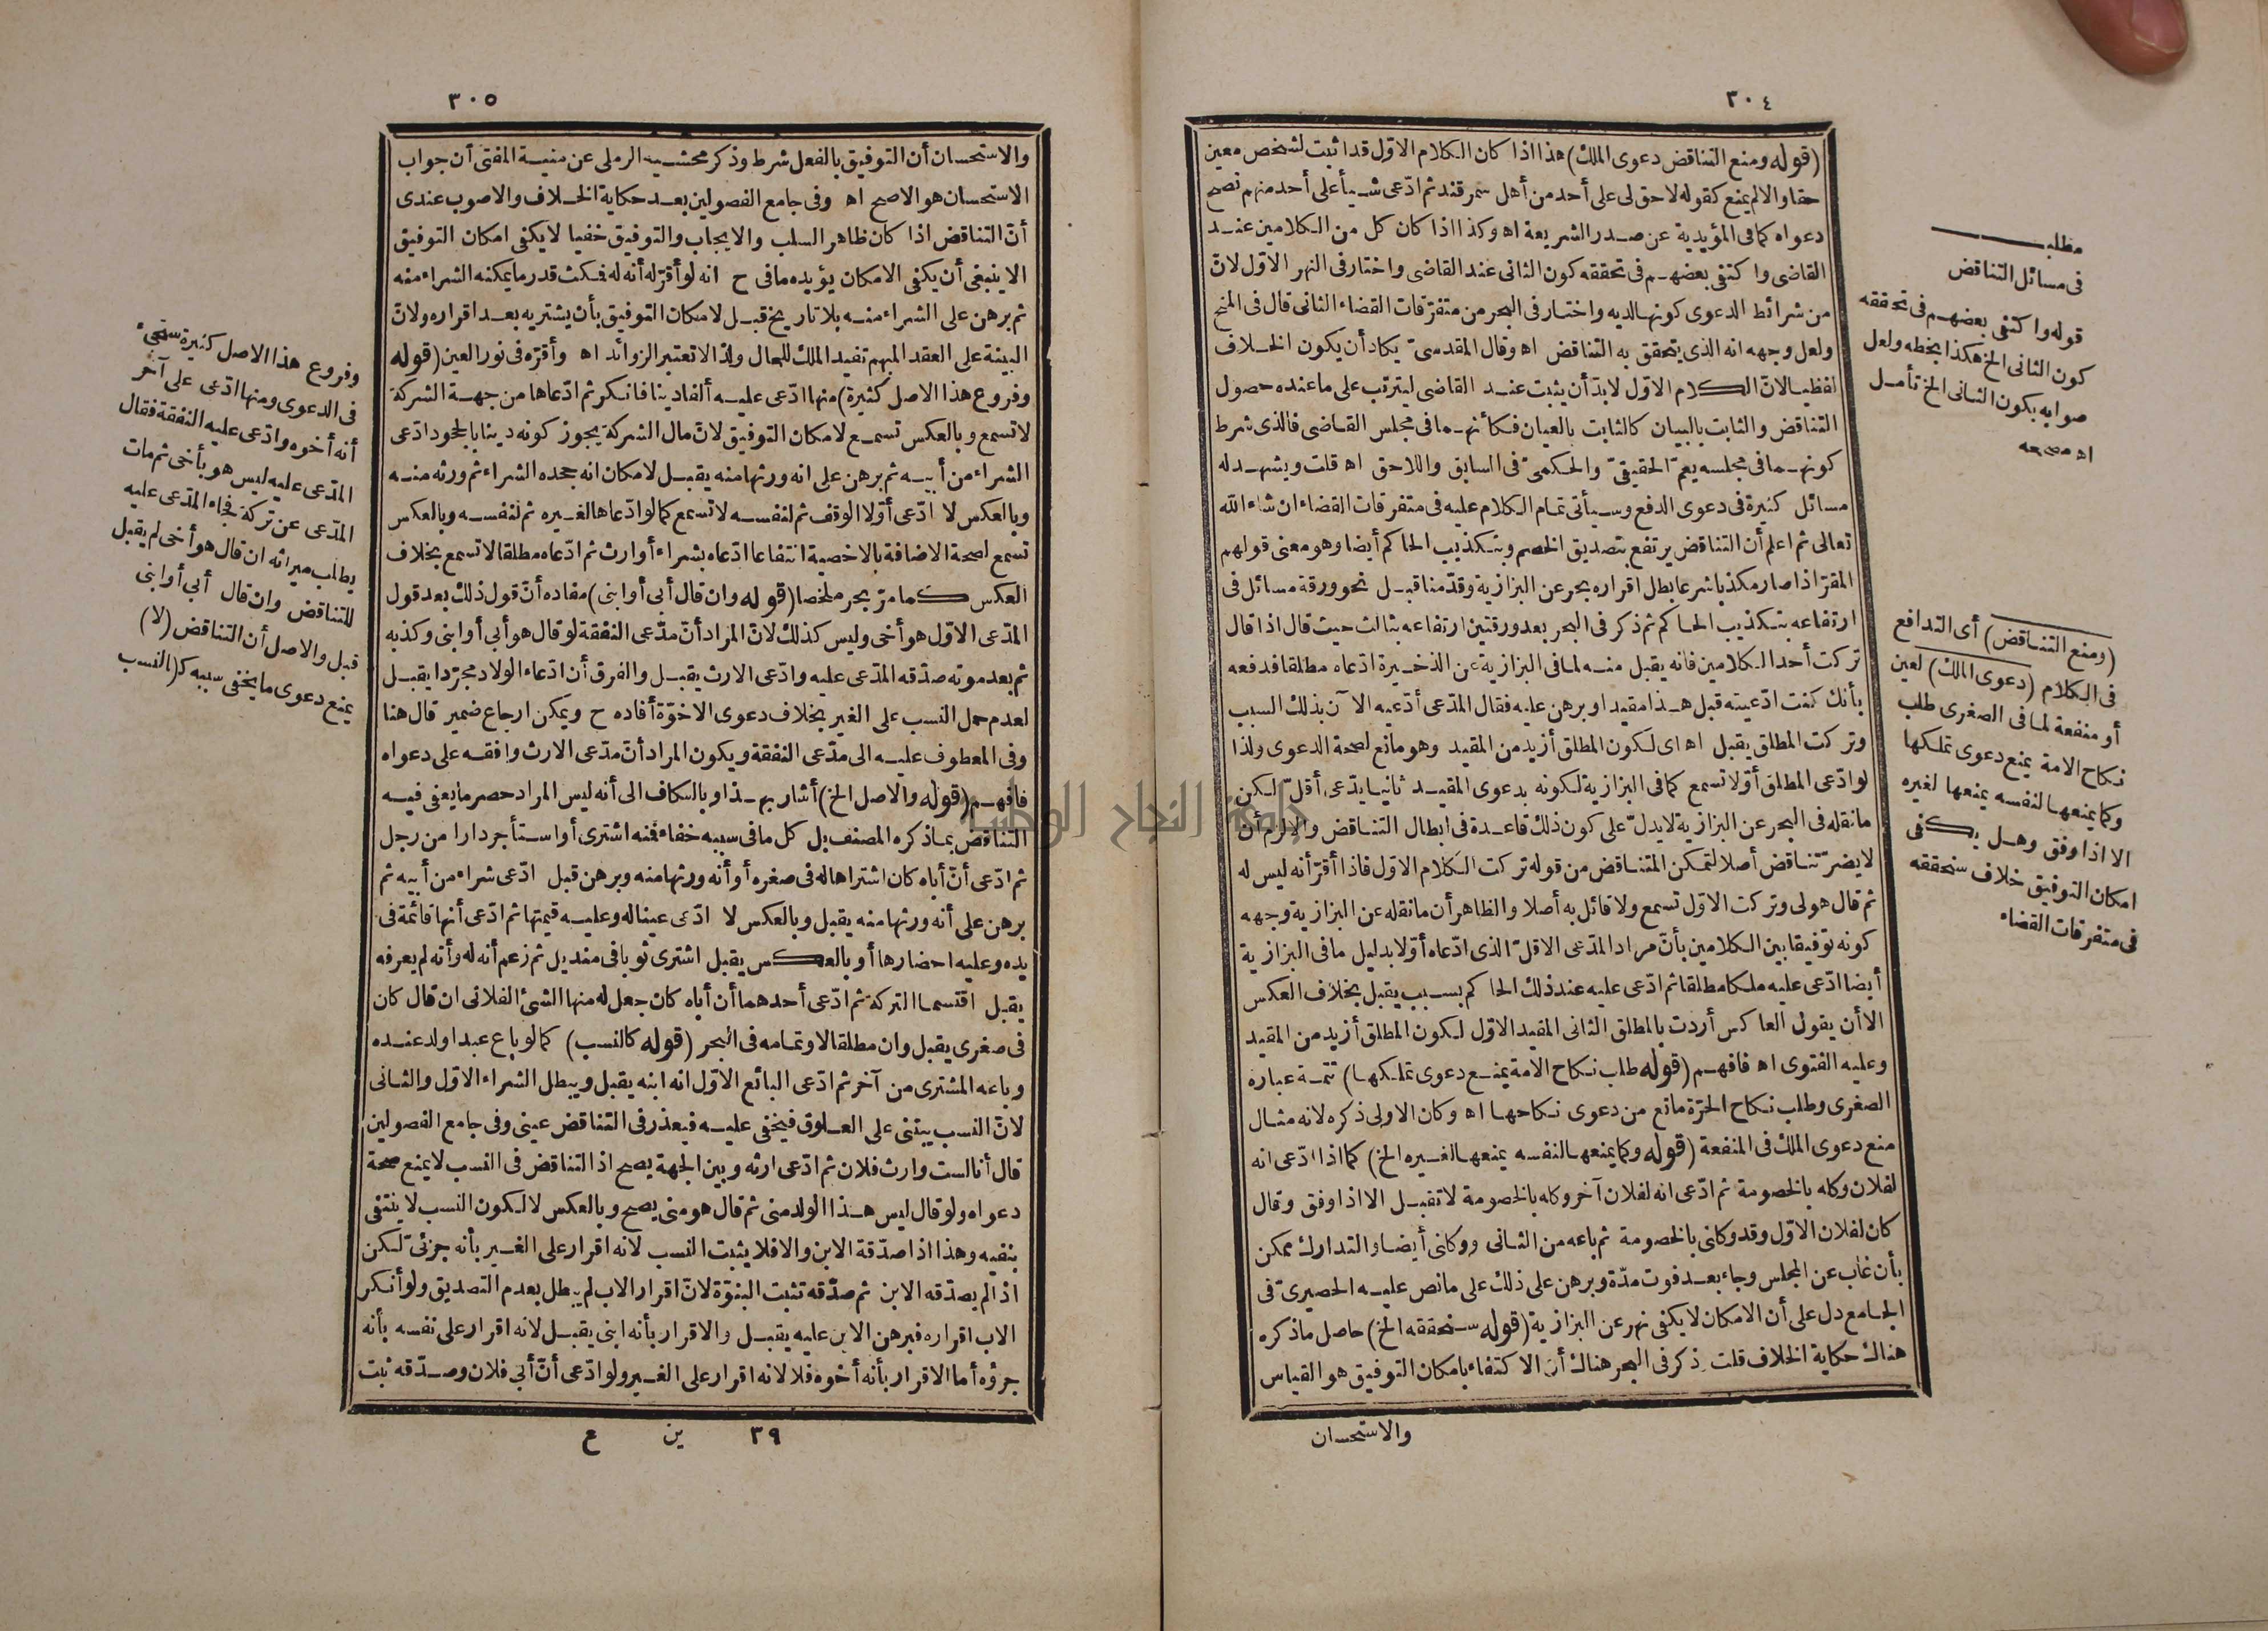 ٣٠٤
(قوله ومنع التناقض دعوى الملك) هذا اذا كان الكلام الاوّل قد اثبت لشخص معين
حقا والا لم يمنع كقوله لاحق لى على أحد من أهل سمرقند ثم ادّعى شيأ على أحد منهم تصح
دعواه كما فى المؤيدية عن صدر الشريعة اه وكذا اذا كان كل من الكلامين عند
القاضى واكتفى بعضهم فى تحققه كون الثانى عند القاضى واختار فى النهر الاوّل لانّ
من شرائط الدعوى كونها لديه واختار فى البحر من متفرّقات القضاء الثانى قال فى المنح
ولعل وجهه انه الذى يتحقق به التناقض اه وقال المقدسىّ يكاد أن يكون الخلاف
لفظيا لانّ الكلام الاوّل لابدّ أن يثبت عند القاضى ليترتب على ما عنده حصول
التناقض والثابت بالبيان كالثابت بالعيان فكأنهما فى مجلس القاضى فالذى شرط
كونهما فى مجلسه يعمّ الحقيقىّ والحكمىّ فى السابق واللاحق اه قلت ويشهد له
مسائل كثيرة فى دعوى الدفع وسيأتى تمام الكلام عليه فى متفرقات القضاء ان شاء الله
تعالى ثم اعلم أن التناقض يرتفع بتصديق الخصم وبتكذيب الحاكم أيضا وهو معنى قولهم
المقرّ اذا صار مكذبا شرعا بطل اقراره بحر عن البزازية وقدّمنا قبل نحو ورقة مسائل فى
ارتفاعه بتكذيب الحاكم ثم ذكر فى البحر بعد ورقتين ارتفاعه بثالث حيث قال اذا قال
تركت أحد الكلامين فانه يقبل منه لما فى البزازية عن الذخيرة ادّعاه مطلقا فدفعه
بأنك كنت ادّعيته قبل هذا مقيدا وبرهن عليه فقال المدّعى أدّعيه الآن بذلك السبب
وتركت المطلق يقبل اه اى لكون المطلق أزيد من المقيد وهو مانع لصحة الدعوى ولذا
لو ادّعى المطلق أوّلا تسمع كما فى البزازية لكونه بدعوى المقيد ثانيا يدّعى أقلّ لكن
ما نقله فى البحر عن البزازية لا يدلّ على كون ذلك قاعدة فى ابطال التناقض والا لزم أن
لا يضرّ تناقض أصلا لتمكن المتناقض من قوله تركت الكلام الاوّل فاذا أقرّ أنه ليس له
ثم قال هو لى وتركت الاوّل تسمع ولا قائل به أصلا والظاهر أن ما نقله عن البزازية وجهه
كونه توفيقا بين الكلامين بأنّ مراد المدّعى الاقلّ الذى ادّعاه أوّلا بدليل ما فى البزازية
أيضا ادّعى عليه ملكا مطلقا ثم ادّعى عليه عند ذلك الحاكم بسبب يقبل بخلاف العكس
الا أن يقول العاكس أردت بالمطلق الثانى المقيد الاوّل لكون المطلق أزيد من المقيد
وعليه الفتوى اه فافهم (قوله طلب نكاح الامة يمنع دعوى تملكها) تتمة عبارة
الصغرى وطلب نكاح الحرّة مانع من دعوى نكاحها اه وكان الاولى ذكره لانه مثال
منع دعوى الملك فى المنفعة (قوله وكما يمنعها لنفسه يمنعها لغيره الخ) كما اذا ادّعى انه
لفلان وكله بالخصومة ثم ادّعى انه لفلان آخر وكله بالخصومة لا تقبل الا اذا وفق وقال
كان لفلان الاوّل وقد وكلنى بالخصومة ثم باعه من الثانى ووكلنى أيضا والتدارك ممكن
بأن غاب عن المجلس وجاء بعد فوت مدّة وبرهن على ذلك على ما نص عليه الحصيرىّ فى
الجامع دل على أن الامكان لا يكفى نهر عن البزازية (قوله سنحققه الخ) حاصل ما ذكره
هناك حكاية الخلاف قلت ذكر فى البحر هناك أن الاكتفاء بامكان التوفيق هو القياس
والاستحسان
مطلب
فى مسائل التناقض
قوله واكتفى بعضهم فى تحققه
كون الثانى الخ هكذا بخطه ولعل
صوابه بكون الثانى الخ تأمل
اه مصححه
(ومنع التناقض) أى التدافع
فى الكلام (دعوى الملك) لعين
أو منفعة لما فى الصغرى طلب
نكاح الامة يمنع دعوى تملكها
وكما يمنعها لنفسه يمنعها لغيره
الا اذا وفق وهل يكفى
امكان التوفيق خلاف سنحققه
فى متفرقات القضاء
٣٠٥
والاستحسان أن التوفيق بالفعل شرط وذكر محشيه الرملى عن منية المفتى أن جواب
الاستحسان هو الاصح اه وفى جامع الفصولين بعد حكاية الخلاف والاصوب عندى
أنّ التناقض اذا كان ظاهر السلب والايجاب والتوفيق خفيا لا يكفى امكان التوفيق
الا ينبغى أن يكفى الامكان يؤيده ما فى ح انه لو أقرّ له أنه له فمكث قدر ما يمكنه الشراء منه
ثم برهن على الشراء منه بلا تاريخ قبل لامكان التوفيق بأن يشتريه بعد اقراره ولانّ
البينة على العقد المبهم تفيد الملك للحال ولذا لا تعتبر الزوائد اه وأقرّه فى نور العين (قوله
وفروع هذا الاصل كثيرة) منها ادّعى عليه ألفا دينا فانكر ثم ادّعاها من جهة الشركة
لا تسمع وبالعكس تسمع لامكان التوفيق لانّ مال الشركة يجوز كونه دينا بالجحود ادّعى
الشراء من أبيه ثم برهن على انه ورثها منه يقبل لامكان انه جحده الشراء ثم ورثه منه
وبالعكس لا ادّعى أوّلا الوقف ثم لنفسه لا تسمع كما لو ادّعاها لغيره ثم لنفسه وبالعكس
تسمع لصحة الاضافة بالاخصية انتفاعا ادّعاه بشراء أو ارث ثم ادّعاه مطلقا لا تسمع بخلاف
العكس كما مرّ بحر ملخصا (قوله وان قال أبى أو ابنى) مفاده أنّ قول ذلك بعد قول
المدّعى الاوّل هو أخى وليس كذلك لانّ المراد أنّ مدّعى النفقة لو قال هو أبى أو ابنى وكذبه
ثم بعد موته صدّقه المدّعى عليه وادّعى الارث يقبل والفرق أن ادّعاء الولاد مجرّدا يقبل
لعدم حمل النسب على الغير بخلاف دعوى الاخوّة أفاده ح ويمكن ارجاع ضمير قال هنا
وفى المعطوف عليه الى مدّعى النفقة ويكون المراد أنّ مدّعى الارث وافقه على دعواه
فافهم (قوله والاصل الخ) أشار بهذا وبالكاف الى أنه ليس المراد حصر ما يعفى فيه
التناقض بما ذكره المصنف بل كل ما فى سببه خفاء فمنه اشترى أو استأجر دارا من رجل
ثم ادّعى أنّ أباه كان اشتراها له فى صغره أو أنه ورثها منه وبرهن قبل ادّعى شراء من أبيه ثم
برهن على أنه ورثها منه يقبل وبالعكس لا ادّعى عينا له وعليه قيمتها ثم ادّعى أنها قائمة فى
يده وعليه احضارها أو بالعكس يقبل اشترى ثوبا فى منديل ثم زعم أنه له وأنه لم يعرفه
يقبل اقتسما التركة ثم ادّعى أحدهما أن أباه كان جعل له منها الشئ الفلانى ان قال كان
فى صغرى يقبل وان مطلقا لا وتمامه فى البحر (قوله كالنسب) كما لو باع عبدا ولد عنده
وباعه المشترى من آخر ثم ادّعى البائع الاوّل انه ابنه يقبل ويبطل الشراء الاوّل والثانى
لانّ النسب يبتنى على العلوق فيخفى عليه فيعذر فى التناقض عينى وفى جامع الفصولين
قال أنا لست وارث فلان ثم ادّعى ارثه وبين الجهة يصح اذ التناقض فى النسب لا يمنع صحة
دعواه ولو قال ليس هذا الولد منى ثم قال هو منى يصح وبالعكس لا لكون النسب لا ينتفى
بنفيه وهذا اذا صدّقة الابن والا فلا يثبت النسب لانه اقرار على الغير بأنه جزئىّ لكن
اذا لم يصدّقه الابن ثم صدّقه تثبت البنوّة لانّ اقرار الاب لم يبطل بعدم التصديق ولو أنكر
الاب اقراره فبرهن الابن عليه يقبل والاقرار بأنه ابنى يقبل لانه اقرار على نفسه بأنه
جزؤه أما الاقرار بأنه أخوه فلا لانه اقرار على الغير ولو ادّعى أنّ أبى فلان وصدّقه ثبت
٣٩ ين ع
وفروع هذا الاصل كثيرة ستجىء
فى الدعوى ومنها ادّعى على آخر
أنه أخوه وادّعى عليه النفقة فقال
المدّعى عليه ليس هو بأخى ثم مات
المدّعى عن تركة فجاء المدّعى عليه
يطلب ميراثه ان قال هو أخى لم يقبل
للتناقض وان قال أبى أو ابنى
قبل والاصل أن التناقض (لا)
يمنع دعوى ما يخفى سببه ك(النسب
جامعة النجاح الوطنية